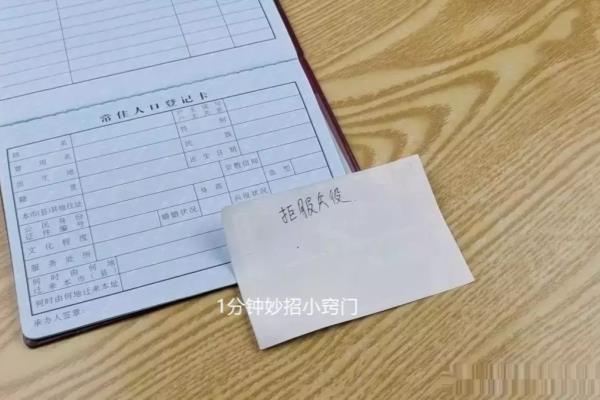 常住人口登记卡
姓名
户主或与户主关系
曾用名
性别
出生地
民族
籍贯
出生日期
本市(县)其他住址
宗教信仰
公民身份证件编号
身高
血型
文化程度
婚姻状况
兵役状况
服务处所
何时由何地迁来本市(县)
何时由何地迁来本址
承办人签章:
拒服兵役
1分钟妙招小窍门